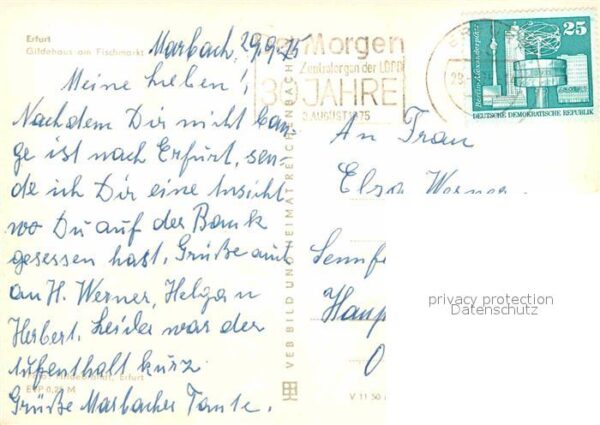 Erfurt
Gildehaus am Fischmarkt
Marbach, 29.9.75
Meine Lieben!
Nachdem Dir nicht ban-
ge ist nach Erfurt, sen-
de ich Dir eine Ansicht
wo Du auf der Bank
gesessen hast. Grüße auch
an H. Werner, Helga u
Herbert. Leider war der
Aufenthalt kurz
Erfurt
EVP 0,25 M
Grüße Marbacher Tante.
VEB BILD UND HEIMAT REICHENBACH
V 11 50
Morgen
Zentralorgan der LDPD
30 JAHRE
3. AUGUST 1975
Berlin, Alexanderplatz
25
DEUTSCHE DEMOKRATISCHE REPUBLIK
An Frau
Werner
Sennfe
Haup
O
privacy protection
Datenschutz